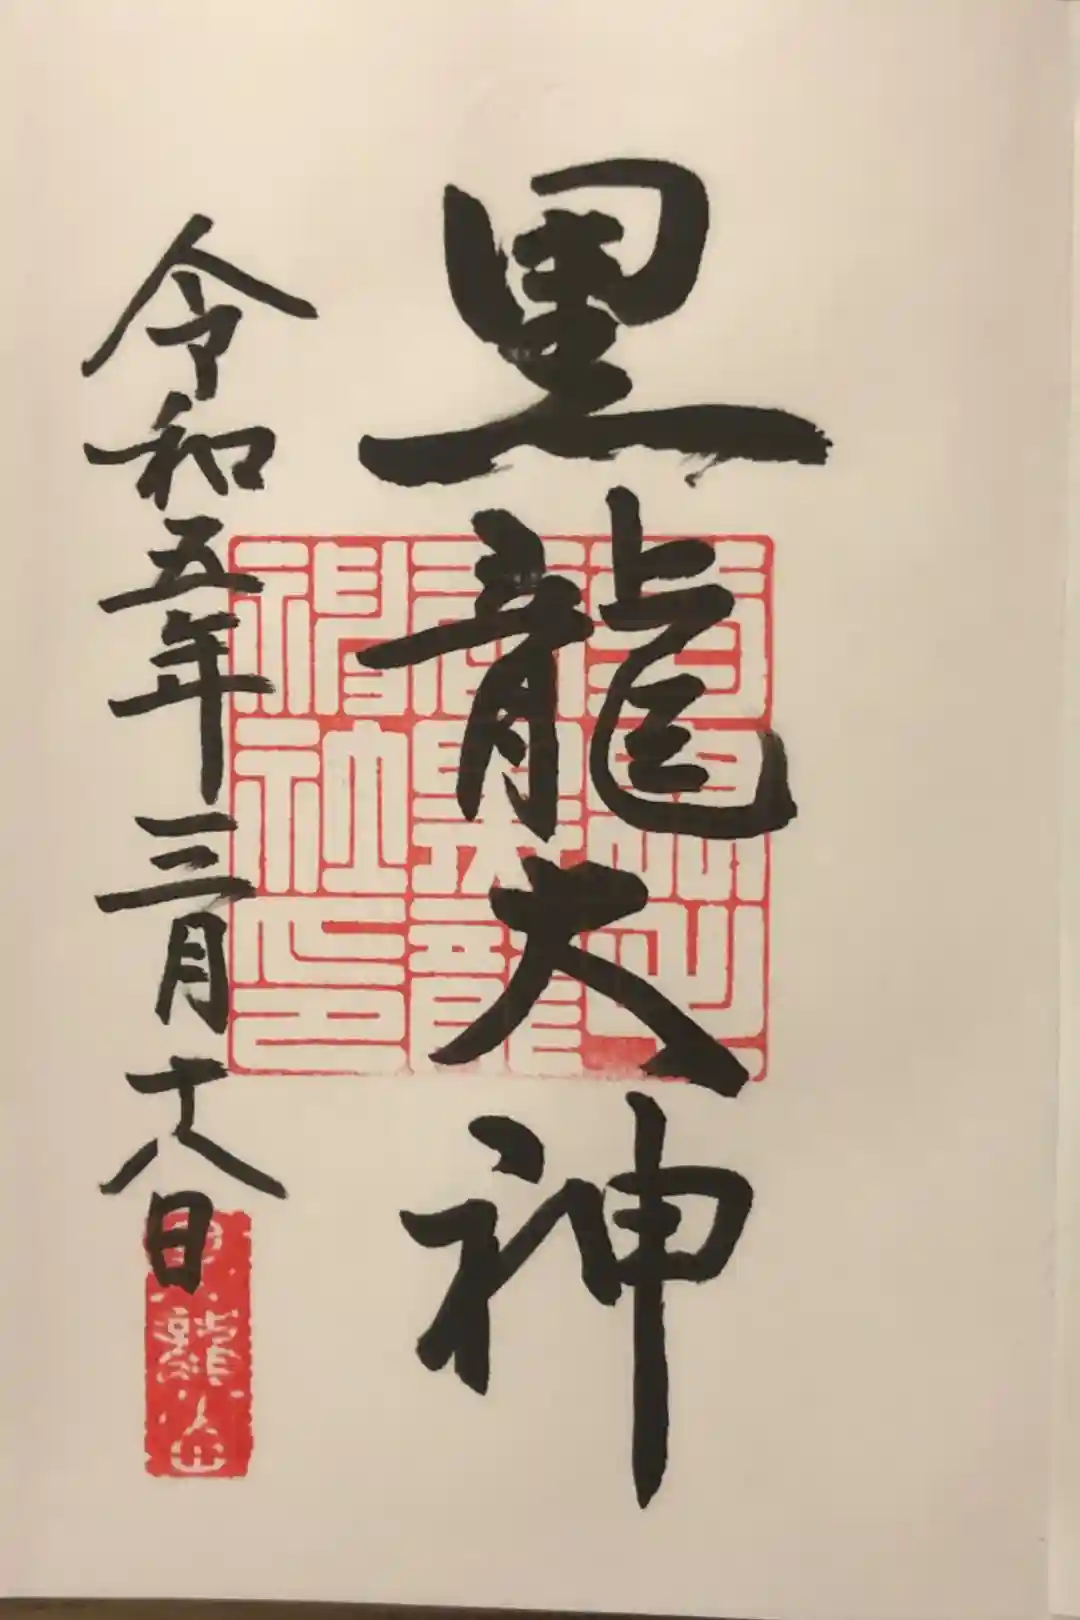 黒龍大神
令和五年三月十八日